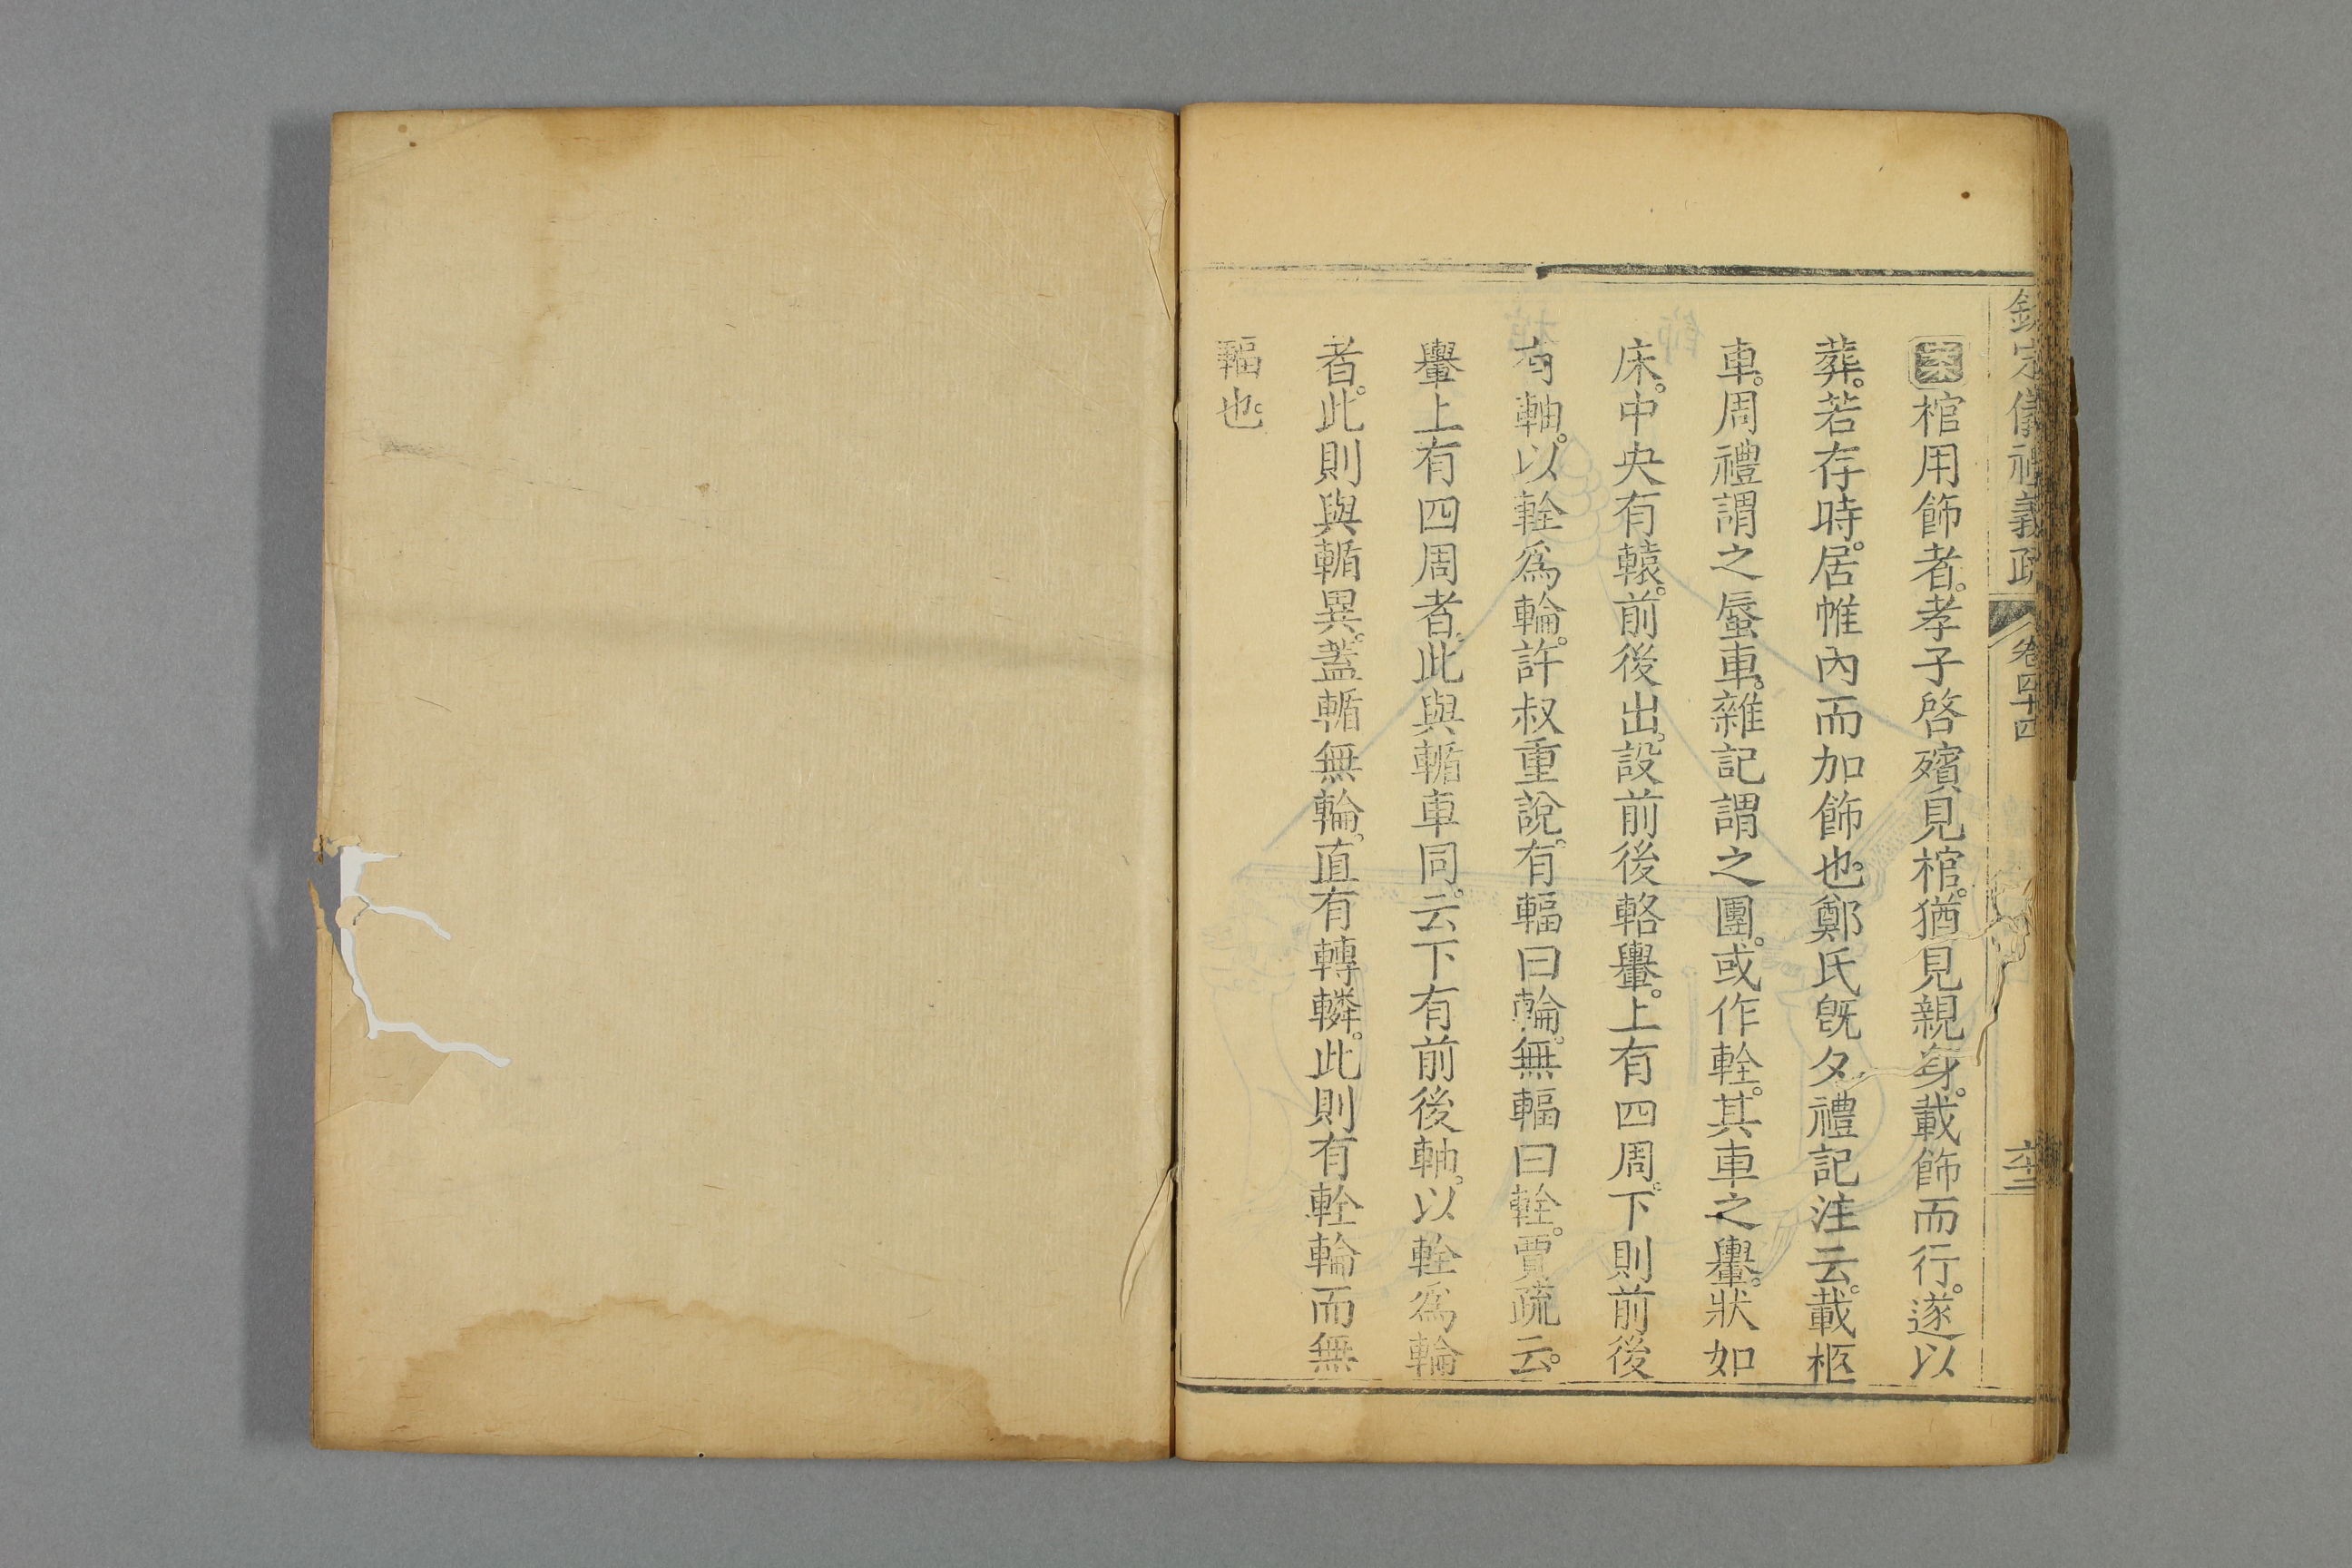 欽定儀禮義疏 卷四十四
案棺用飾者。孝子啓殯見棺。猶見親身。載飾而行。遂以
葬。若存時。居帷內而加飾也。鄭氏旣夕禮記注云。載柩
車。周禮謂之蜃車。雜記謂之團。或作輇。其車之轝。狀如
床。中央有轅。前後出。設前後輅轝。上有四周。下則前後
有軸。以輇爲輪。許叔重說。有輻曰輪。無輻曰輇。賈疏云。
轝上有四周者。此與輴車同。云下有前後軸。以輇爲輪
者。此則與輴異。蓋輴無輪。直有轉轔。此則有輇輪而無
輻也。